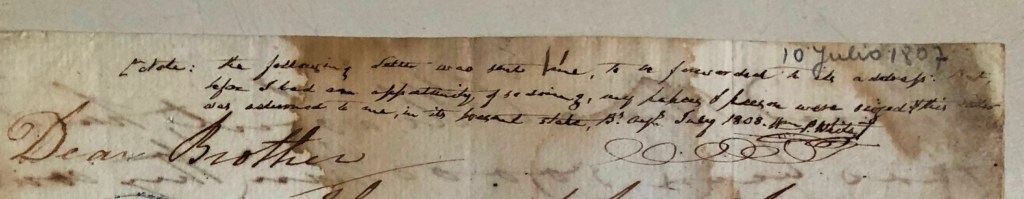 10 Julio 1807
Note: the following Letter was sent me, to be forwarded to its address: but
before I had an opportunity of so doing, my papers & person were seized & this letter
was returned to me, in its present state, Bs. Ays. July 1808. Wm. P. White
Dear Brother